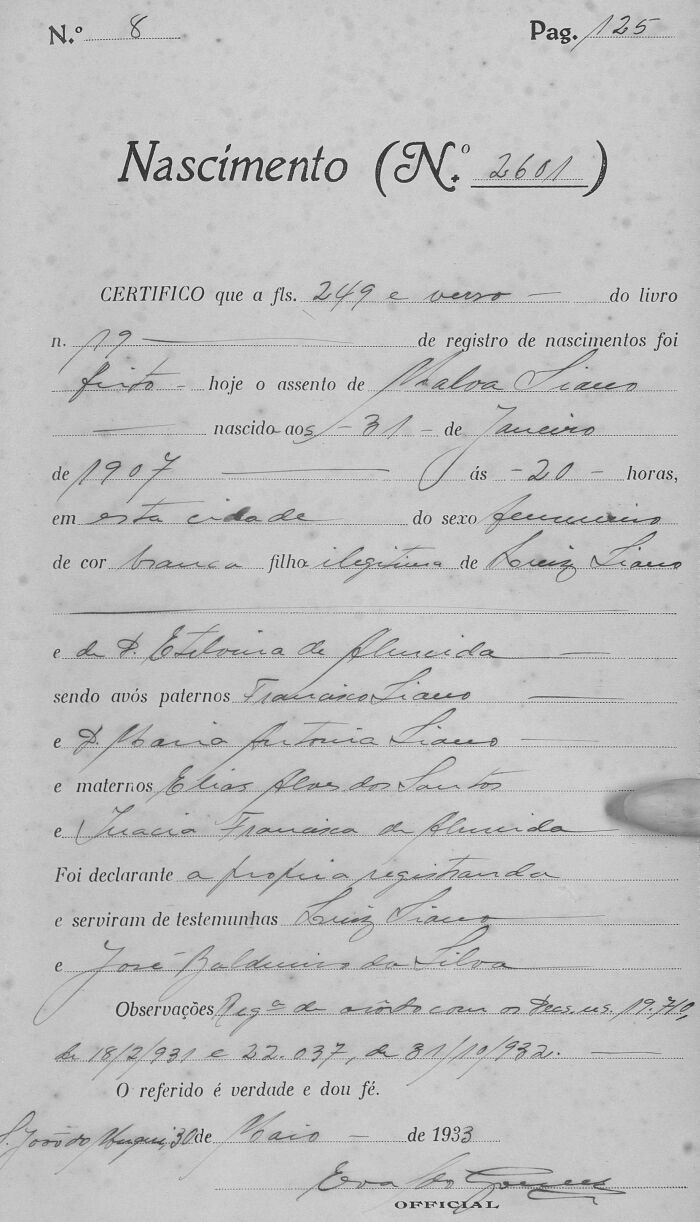 N.º 8 Pag. 125
Nascimento (N.º 2601)
CERTIFICO que a fls. 249 e verso — do livro
n. 19 — de registro de nascimentos foi
feito - hoje o assento de Malva Siano
— nascido aos - 31 - de Janeiro
de 1907 — ás - 20 - horas,
em esta cidade do sexo femenino
de cor branca filha ilegitima de Luiz Siano
e de D. Etelvina de Almeida —
sendo avós paternos Francisco Siano —
e D. Maria Antonia Siano —
e maternos Elias Alves dos Santos
e Inacia Francisca de Almeida
Foi declarante a propria registranda
e serviram de testemunhas Luiz Siano
e José Balduino da Silva
Observações Reg.ª de acôrdo com os Decs. ns. 19.710,
de 18/2/931 e 22.037, de 31/10/932. —
O referido é verdade e dou fé.
S. João do 30 de Maio - de 1933
OFFICIAL